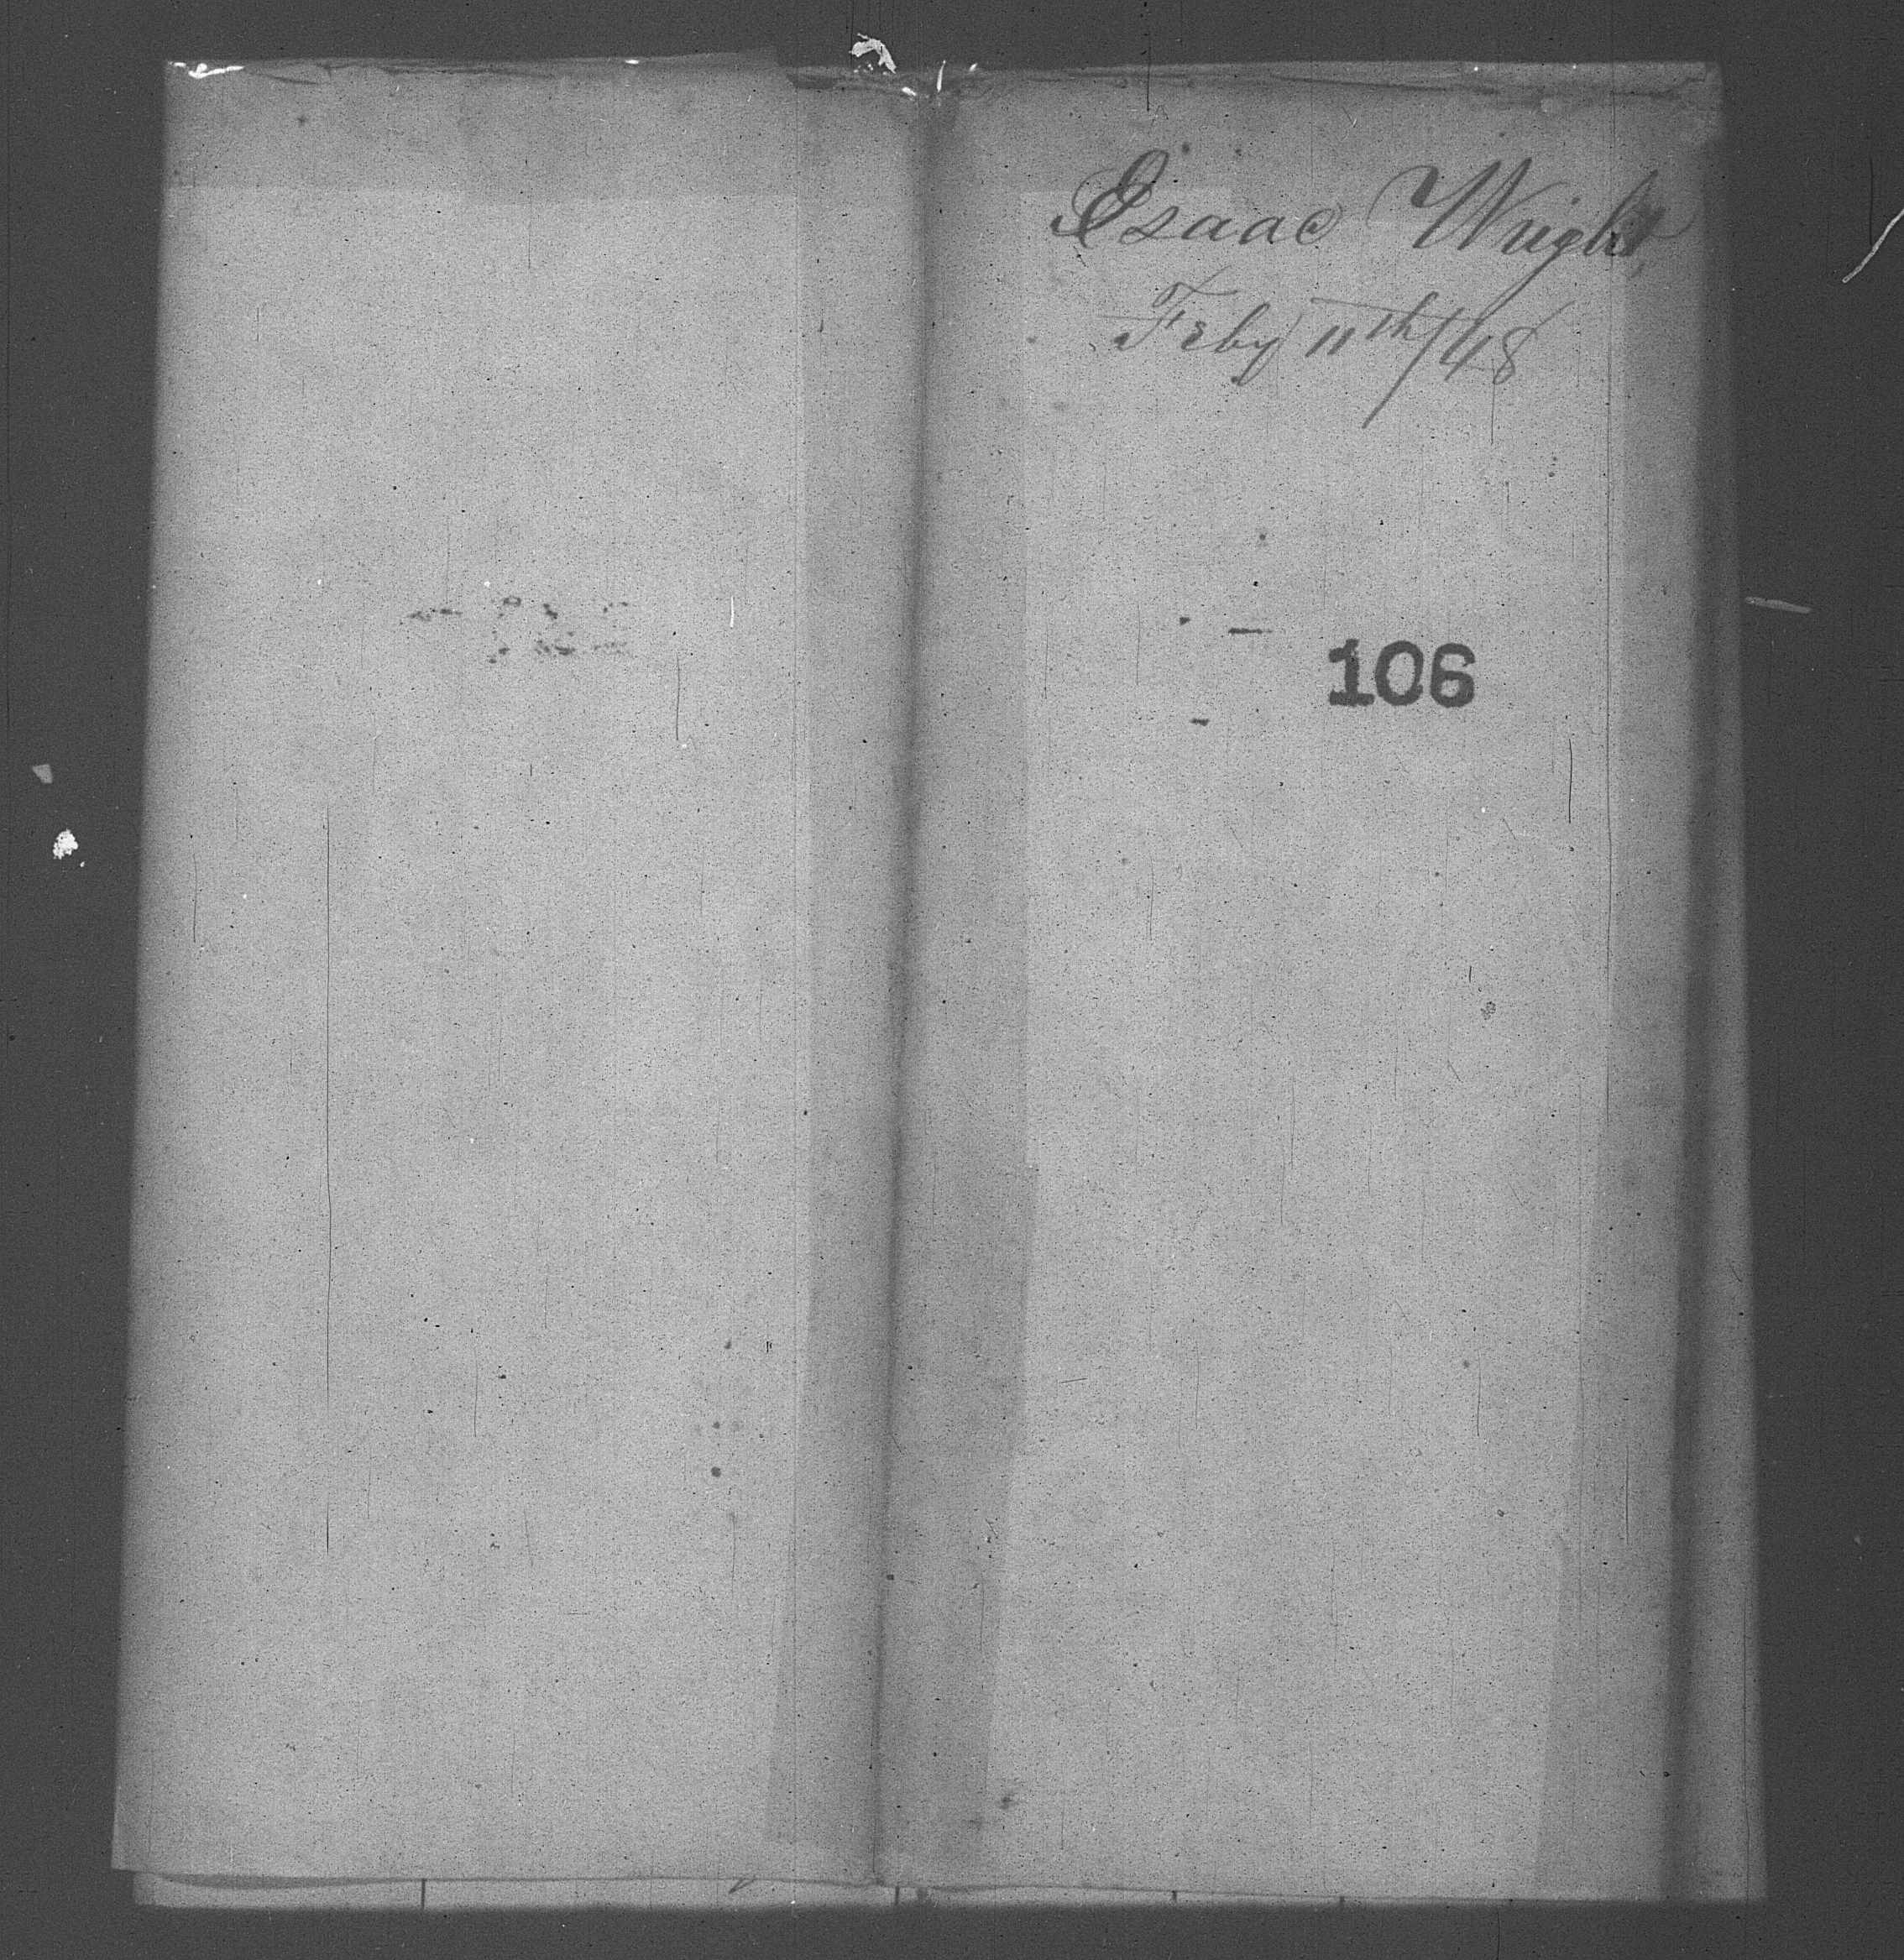 Isaac Wright,
Feby 11th/48
106